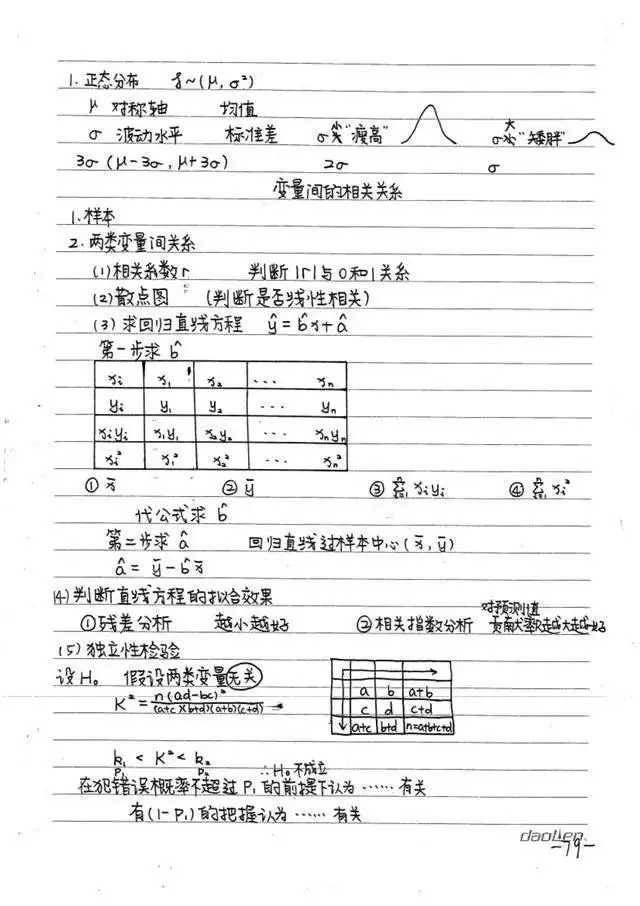 1. 正态分布 ξ~(μ, σ²)
μ 对称轴 均值
σ 波动水平 标准差 σ小"瘦高" σ大"矮胖"
3σ (μ-3σ, μ+3σ) 2σ σ
变量间的相关关系
1. 样本
2. 两类变量间关系
(1) 相关系数 r 判断 |r| 与 0 和 1 关系
(2) 散点图 (判断是否线性相关)
(3) 求回归直线方程 ŷ = b̂x + â
第一步求 b̂
xi x₁ x₂ ... xn
yi y₁ y₂ ... yn
xiyi x₁y₁ x₂y₂ ... xnyn
xi² x₁² x₂² ... xn²
① x̄ ② ȳ ③ Σxiyi ④ Σxi²
代公式求 b̂
第二步求 â 回归直线过样本中心(x̄, ȳ)
â = ȳ - b̂x̄
(4) 判断直线方程的拟合效果
①残差分析 越小越好 ②相关指数分析 对预测值贡献率越大越好
(5) 独立性检验
设 H₀ 假设两类变量无关
K² = n(ad-bc)²/(a+c)(b+d)(a+b)(c+d)
a b a+b
c d c+d
a+c b+d n=a+b+c+d
k₁ < K² < k₂
P₁ P₂ ∴H₀不成立
在犯错误概率不超过 P₁ 的前提下认为 …… 有关
有(1-P₁)的把握认为 …… 有关
daolien
-79-